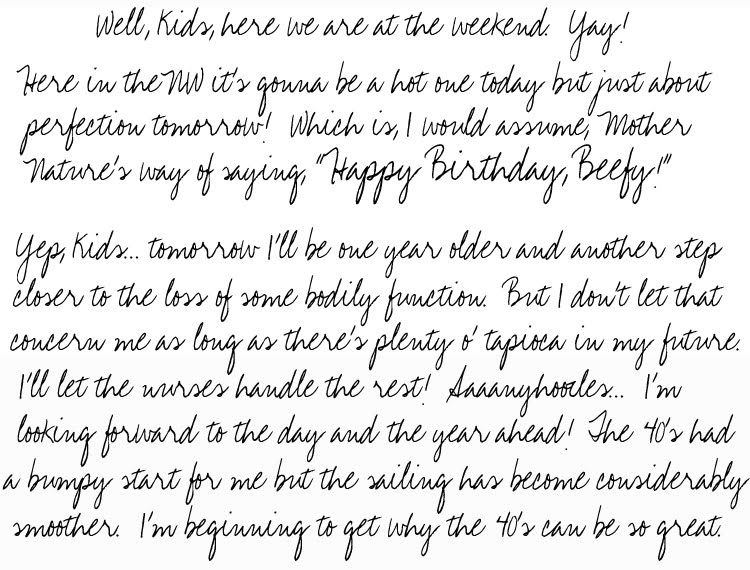 Well, Kids, here we are at the weekend. Yay!
Here in the NW it's gonna be a hot one today but just about
perfection tomorrow! Which is, I would assume, Mother
Nature's way of saying, "Happy Birthday, Beefy!"
Yep, Kids... tomorrow I'll be one year older and another step
closer to the loss of some bodily function. But I don't let that
concern me as long as there's plenty o' tapioca in my future.
I'll let the nurses handle the rest! Aaaanyhoodles... I'm
looking forward to the day and the year ahead! The 40's had
a bumpy start for me but the sailing has become considerably
smoother. I'm beginning to get why the 40's can be so great.